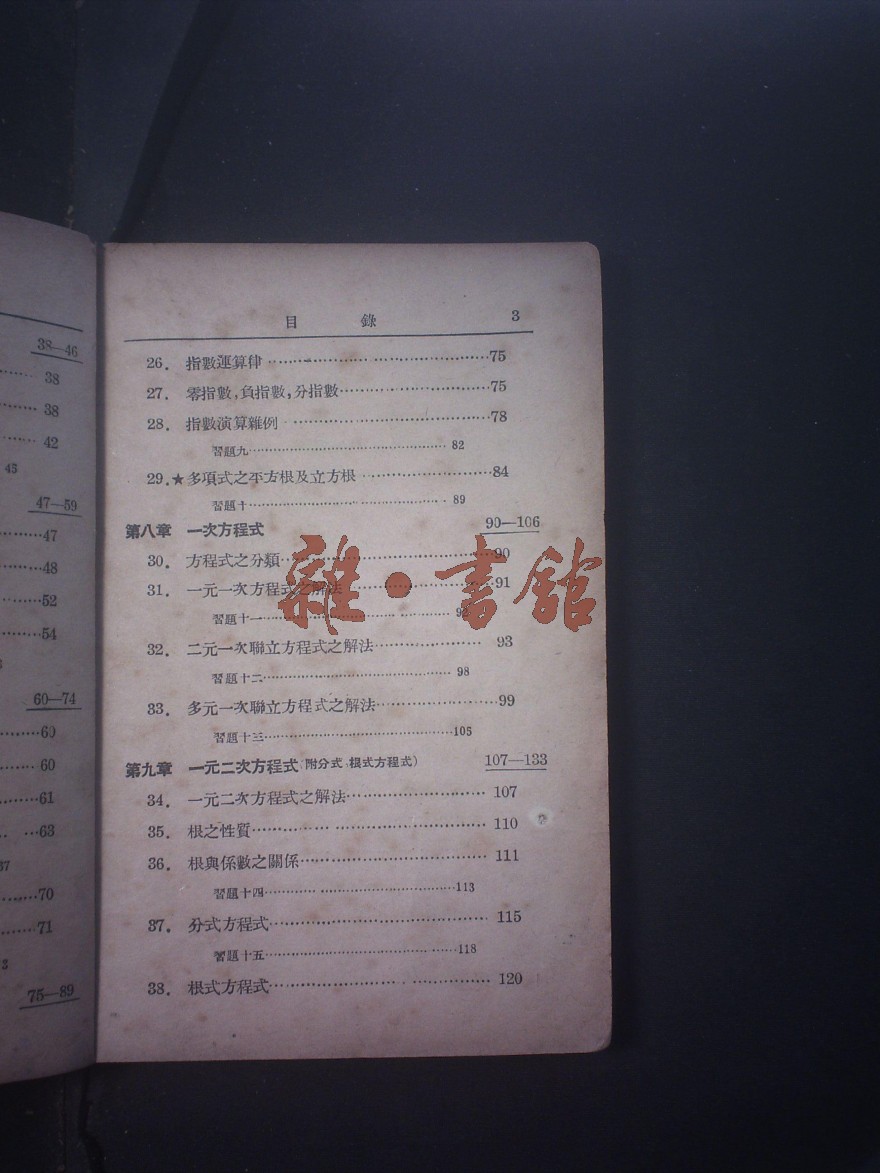 38—46
38
38
42
45
47—59
47
48
52
54
3
60—74
60
60
61
63
37
70
71
3
75—89
目 錄 3
26. 指數運算律 75
27. 零指數,負指數,分指數 75
28. 指數演算雜例 78
習題九 82
29.★多項式之平方根及立方根 84
習題十 89
第八章 一次方程式 90—106
30. 方程式之分類 90
31. 一元一次方程式之解法 91
習題十一
32. 二元一次聯立方程式之解法 93
習題十二 98
33. 多元一次聯立方程式之解法 99
習題十三 105
第九章 一元二次方程式(附分式、根式方程式) 107—133
34. 一元二次方程式之解法 107
35. 根之性質 110
36. 根與係數之關係 111
習題十四 113
37. 分式方程式 115
習題十五 118
38. 根式方程式 120
雜·書館